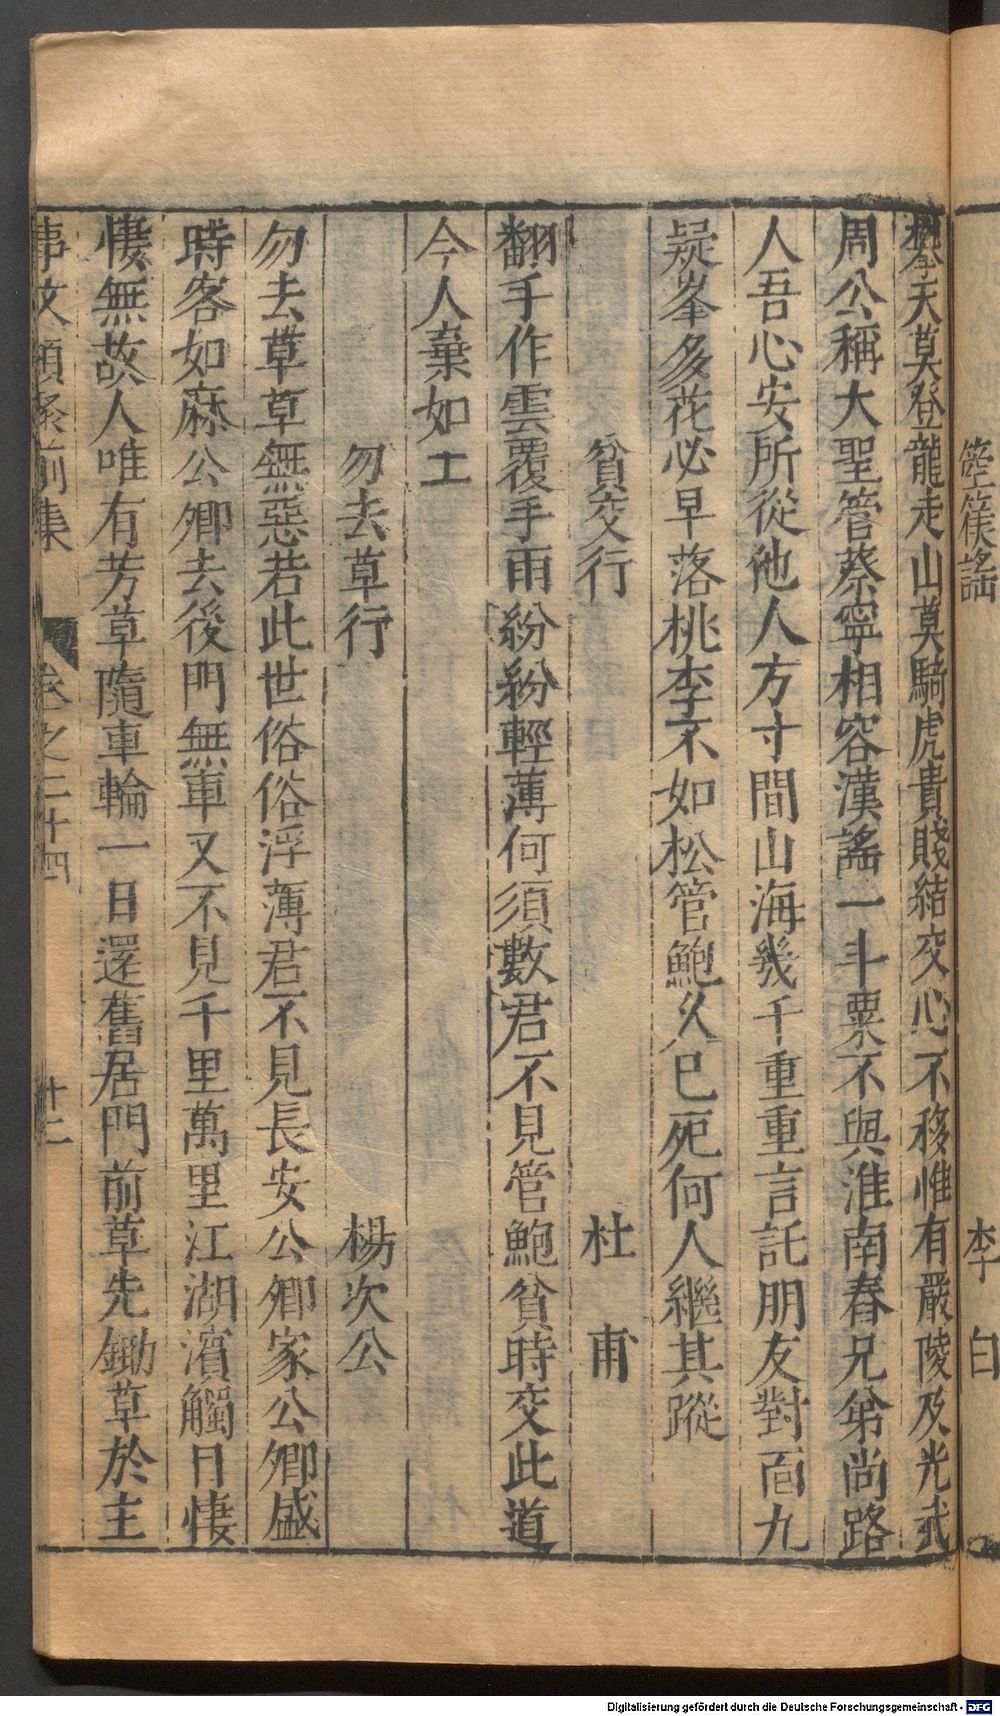 箜篌謠 李白
攀天莫登龍走山莫騎虎貴賤結交心不移惟有嚴陵及光武
周公稱大聖管蔡寧相容漢謠一斗粟不與淮南舂兄弟尚路
人吾心安所從他人方寸間山海幾千重重言託朋友對面九
疑峯多花必早落桃李不如松管鮑久已死何人繼其蹤
貧交行 杜甫
翻手作雲覆手雨紛紛輕薄何須數君不見管鮑貧時交此道
今人棄如土
勿去草行 楊次公
勿去草草無惡若此世俗俗浮薄君不見長安公卿家公卿盛
時客如麻公卿去後門無車又不見千里萬里江湖濱觸日悽
悽無故人唯有芳草隨車輪一日還舊居門前草先鋤草於主
事文類聚前集 卷之二十四 十二
Digitalisierung gefördert durch die Deutsche Forschungsgemeinschaft - DFG